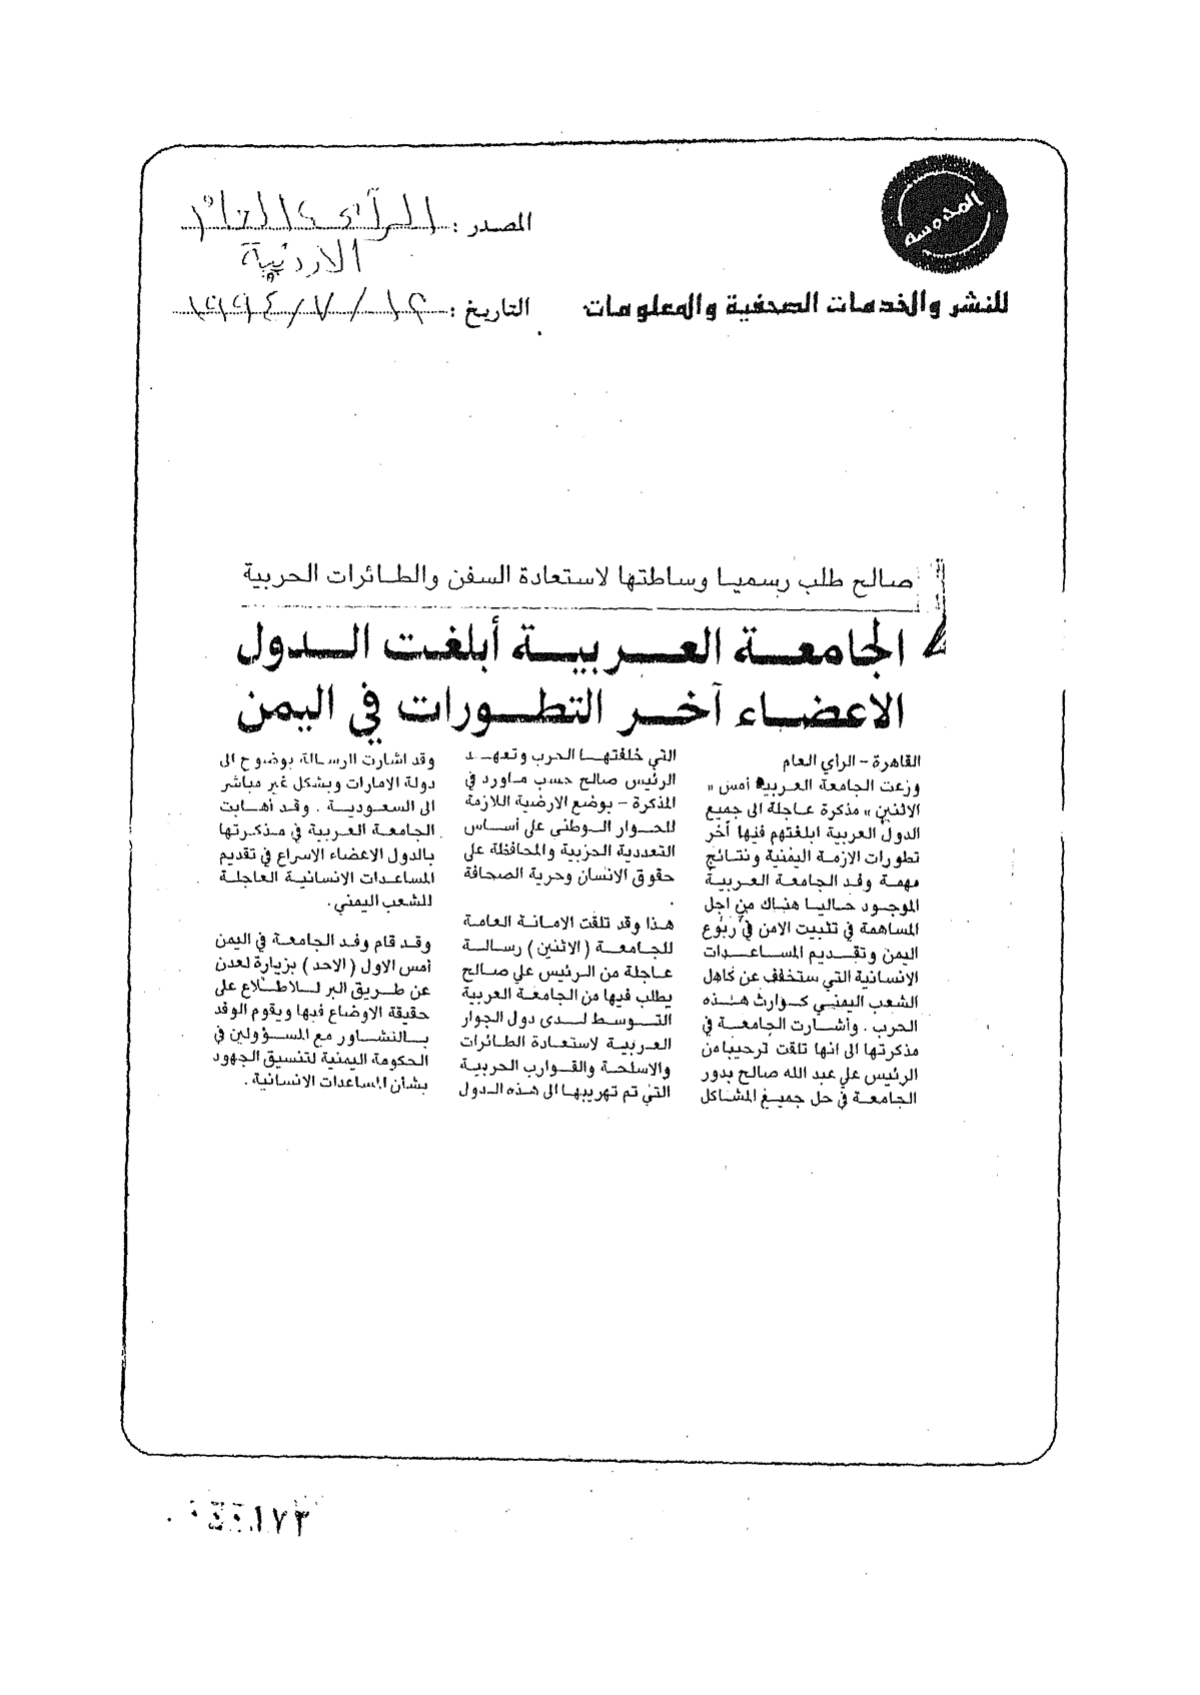 المدوسة
للنشر والخدمات الصحفية والمعلومات
المصدر : الرأي العام
الاردنية
التاريخ : ١٢ / ٧ / ١٩٩٤
صالح طلب رسميا وساطتها لاستعادة السفن والطائرات الحربية
الجامعة العربية أبلغت الدول
الاعضاء آخر التطورات في اليمن
القاهرة - الرأي العام
وزعت الجامعة العربية أمس «
الاثنين » مذكرة عاجلة الى جميع
الدول العربية ابلغتهم فيها آخر
تطورات الازمة اليمنية ونتائج
مهمة وفد الجامعة العربية
الموجود حاليا هناك من اجل
المساهمة في تثبيت الامن في ربوع
اليمن وتقديم المساعدات
الانسانية التي ستخفف عن كاهل
الشعب اليمني كوارث هذه
الحرب . وأشارت الجامعة في
مذكرتها الى انها تلقت ترحيبا من
الرئيس علي عبد الله صالح بدور
الجامعة في حل جميع المشاكل
التي خلفتها الحرب وتعهد
الرئيس صالح حسب ماورد في
المذكرة - بوضع الارضية اللازمة
للحوار الوطني على أساس
التعددية الحزبية والمحافظة على
حقوق الانسان وحرية الصحافة
.
هذا وقد تلقت الامانة العامة
للجامعة ( الاثنين ) رسالة
عاجلة من الرئيس علي صالح
يطلب فيها من الجامعة العربية
التوسط لدى دول الجوار
العربية لاستعادة الطائرات
والاسلحة والقوارب الحربية
التي تم تهريبها الى هذه الدول
وقد اشارت الرسالة بوضوح الى
دولة الامارات وبشكل غير مباشر
الى السعودية . وقد أهابت
الجامعة العربية في مذكرتها
بالدول الاعضاء الاسراع في تقديم
المساعدات الانسانية العاجلة
للشعب اليمني .
وقد قام وفد الجامعة في اليمن
أمس الاول ( الاحد ) بزيارة لعدن
عن طريق البر للاطلاع على
حقيقة الاوضاع فيها ويقوم الوفد
بالتشاور مع المسؤولين في
الحكومة اليمنية لتنسيق الجهود
بشأن المساعدات الانسانية .
١٧٣